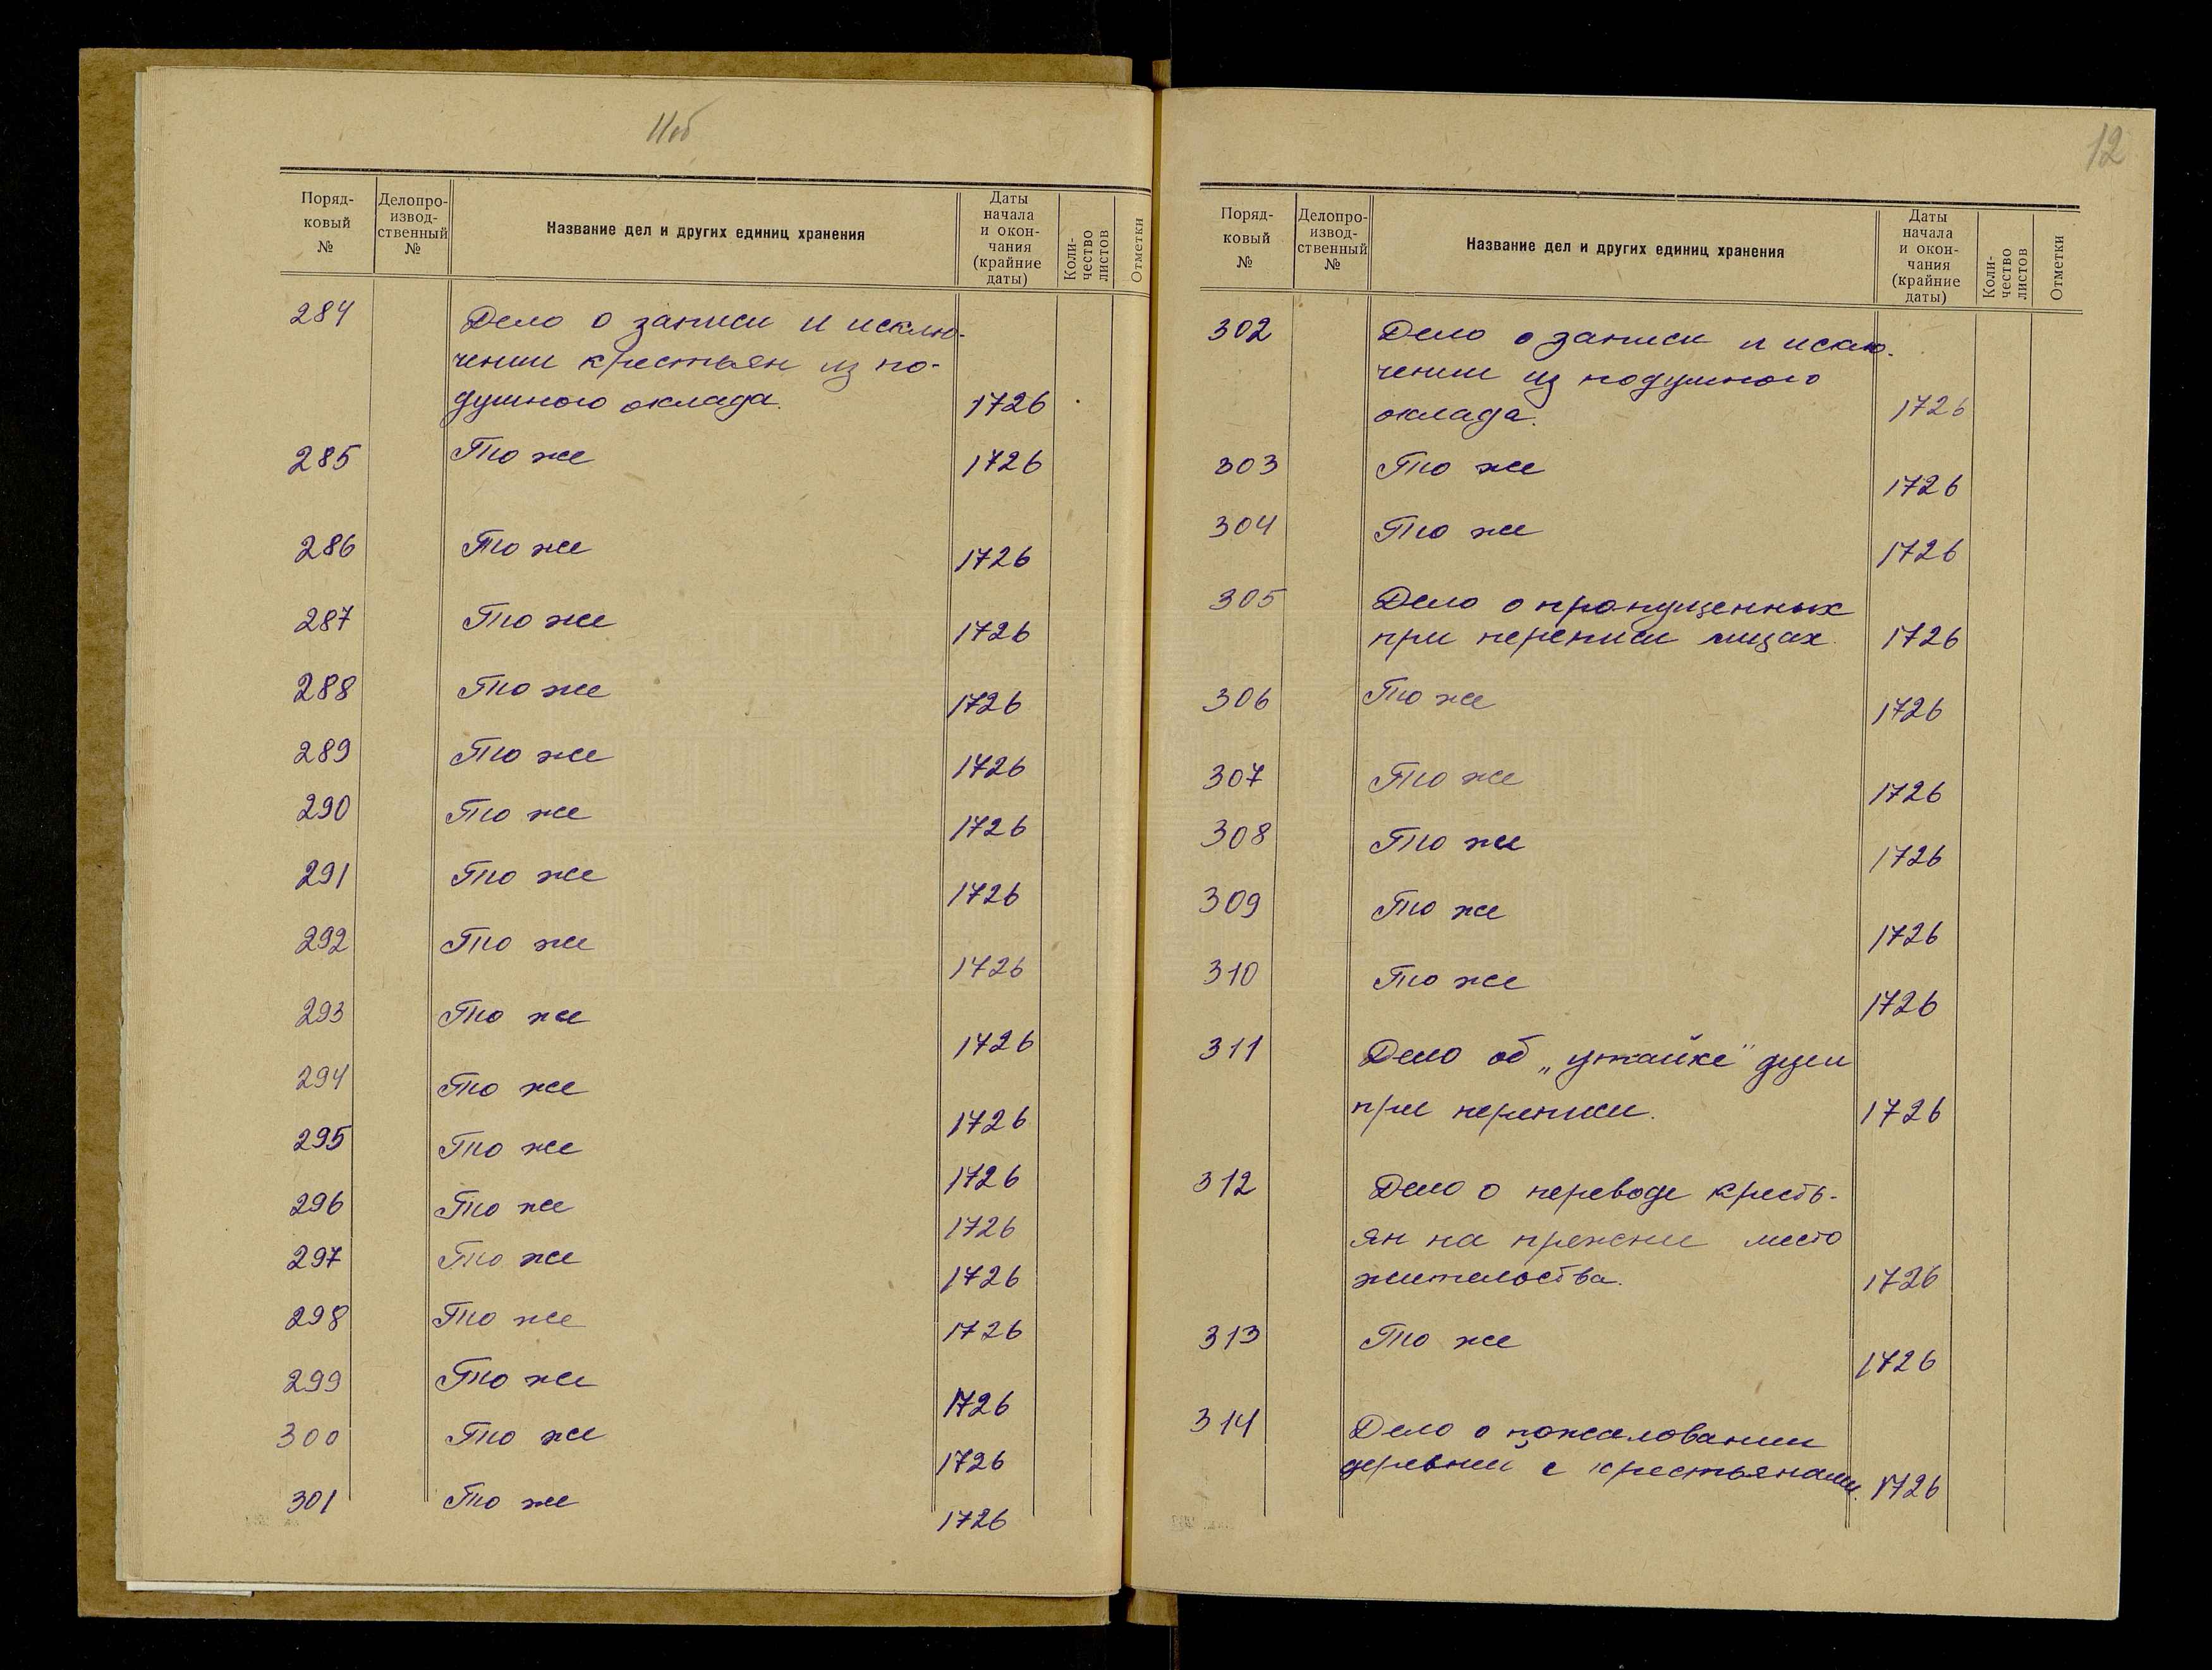 11об
Поряд-
ковый
№
Делопро-
извод-
ственный
№
Название дел и других единиц хранения
Даты
начала
и окон-
чания
(крайние
даты)
Коли-
чество
листов
Отметки
284 Дело о записи и исклю-
чении крестьян из по-
душного оклада. 1726
285 То же 1726
286 То же 1726
287 То же 1726
288 То же 1726
289 То же 1726
290 То же 1726
291 То же 1726
292 То же 1726
293 То же 1726
294 То же 1726
295 То же 1726
296 То же 1726
297 То же 1726
298 То же 1726
299 То же 1726
300 То же 1726
301 То же 1726
12
Поряд-
ковый
№
Делопро-
извод-
ственный
№
Название дел и других единиц хранения
Даты
начала
и окон-
чания
(крайние
даты)
Коли-
чество
листов
Отметки
302 Дело о записи и исклю-
чении из подушного
оклада. 1726
303 То же 1726
304 То же 1726
305 Дело о пропущенных
при переписи лицах. 1726
306 То же 1726
307 То же 1726
308 То же 1726
309 То же 1726
310 То же 1726
311 Дело об „утайке" душ
при переписи. 1726
312 Дело о переводе кресть-
ян на прежне место
жительства. 1726
313 То же 1726
314 Дело о пожаловании
деревней с крестьянами. 1726